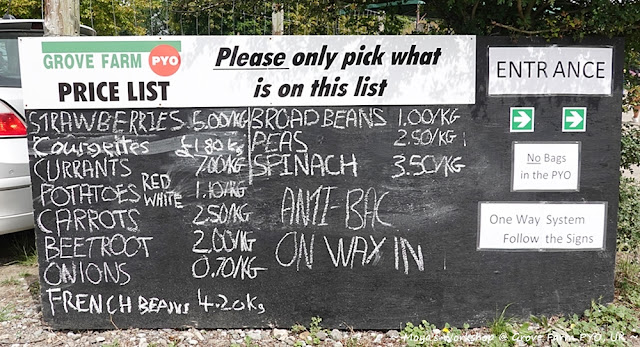 GROVE FARM PYO
PRICE LIST
Please only pick what
is on this list
STRAWBERRIES 5.00/KG
Courgettes £1.80 KG
CURRANTS 7.00/KG
POTATOES RED WHITE 1.10/KG
CARROTS 2.50/KG
BEETROOT 2.00/KG
ONIONS 0.70/KG
FRENCH BEANS 4.20 KG
BROAD BEANS 1.00/KG
PEAS 2.50/KG
SPINACH 3.50/KG
ANTI-BAC
ON WAY IN
ENTRANCE
No Bags
in the PYO
One Way System
Follow the Signs
Moya's Workshop @ Grove Farm PYO, UK